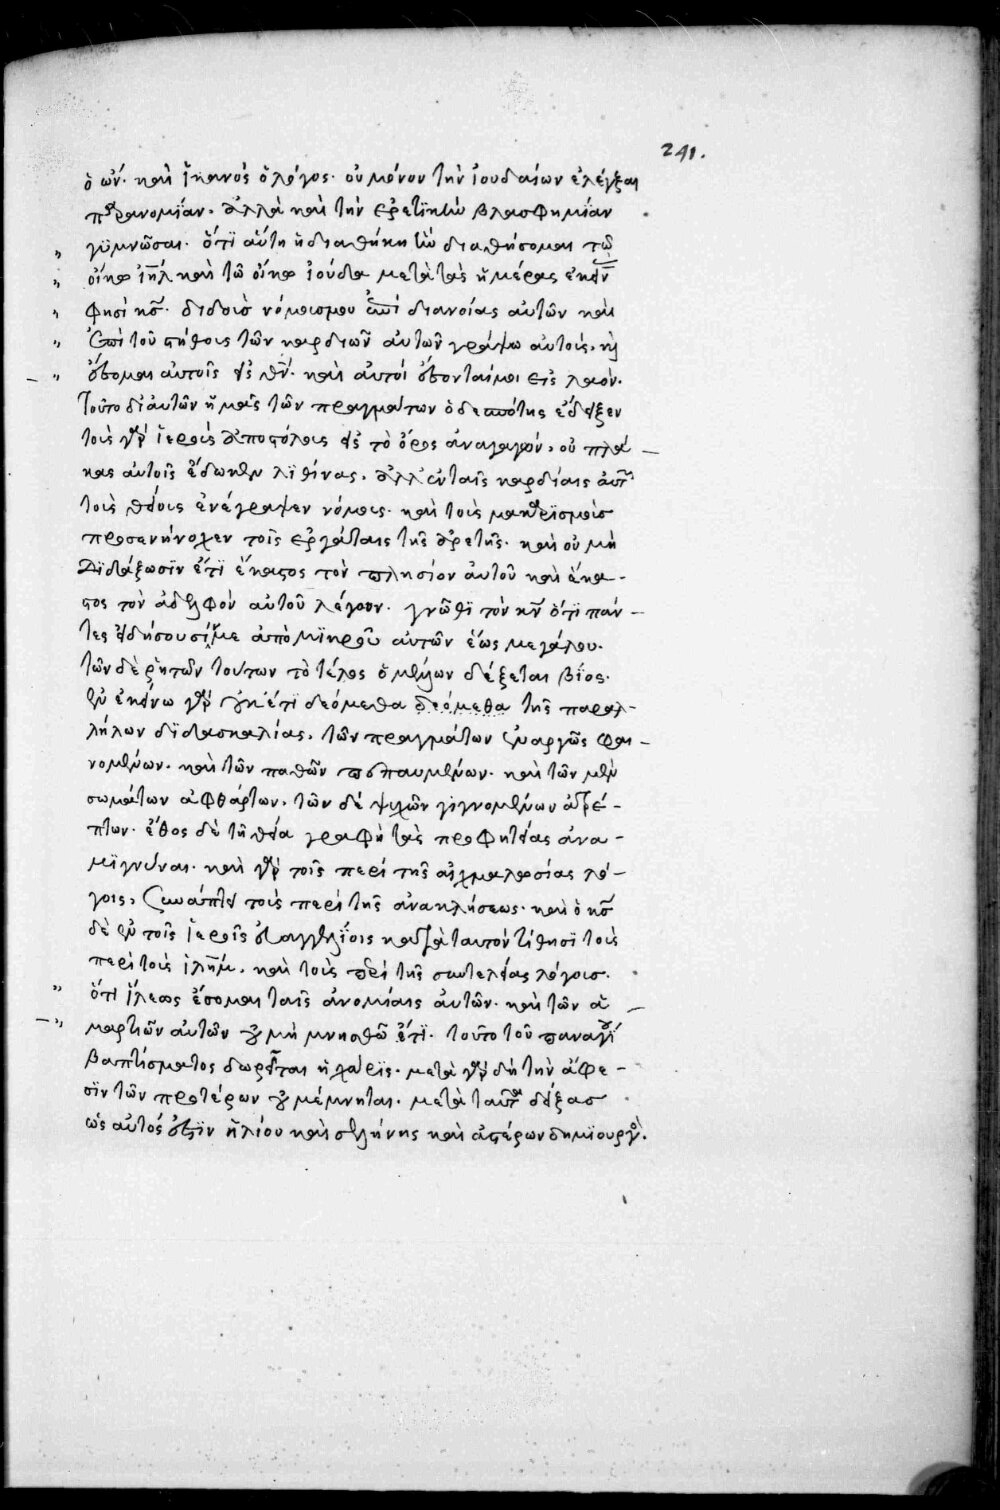 241.
ὁ ὤν. καὶ ἱκανὸς ὁ λόγος. οὐ μόνον τὴν ἰουδαίων ἐλέγξαι
παρανομίαν. ἀλλὰ καὶ τὴν ἐρετικὴν βλασφημίαν
γυμνῶσαι. ὅτι αὕτη ἡ διαθήκη ἣν διαθήσομαι τῶ
οἴκω ἰηλ καὶ τῶ οἴκω ἰούδα μετὰ τὰς ἡμέρας ἐκείν
φησὶ κς. διδοὺς νόμους μου ἐπὶ διανοίας αὐτῶν καὶ
ἐπὶ τοῦ στήθους τῶν καρδιῶν αὐτῶν γράψω αὐτούς. καὶ
ἔσομαι αὐτοῖς εἰς θν. καὶ αὐτοὶ ἔσονταί μοι εἰς λαόν.
τοῦτο δι αὐτῶν ἡμᾶς τῶν πραγμάτων ὁ δεσπότης ἐδίδαξεν
τοὺς γὰρ ἱεροὺς ἀποστόλους εἰς τὸ ὄρος ἀναγαγών. οὐ πλά
κας αὐτοῖς ἔδωκεν λιθίνας. ἀλλ ἐν ταῖς καρδίαις αὐτῶν
τοὺς θείους ἐνέγραψεν νόμους. καὶ τοὺς μακαρισμοὺς
προσενήνοχεν τοῖς ἐργάταις τῆς ἀρετῆς. καὶ οὐ μὴ
διδάξωσιν ἔτι ἕκαστος τὸν πλησίον αὐτοῦ καὶ ἕκα-
στος τὸν ἀδελφὸν αὐτοῦ λέγων. γνῶθι τὸν κν ὅτι πάν-
τες εἰδήσουσί με ἀπὸ μικροῦ αὐτῶν ἕως μεγάλου.
τῶν δὲ ῥητῶν τούτων τὸ τέλος ὁ μέλλων δέξεται βίος.
ἐν ἐκείνω γὰρ οὐκ ἔτι δεόμεθα δεόμεθα τῆς παραλ-
λήλων διδασκαλίας. τῶν πραγμάτων ἐναργῶς φαι-
νομένων. καὶ τῶν παθῶν πεπαυμένων. καὶ τῶν μὲν
σωμάτων ἀφθάρτων. τῶν δὲ ψυχῶν γιγνομένων ἀτρέ-
πτων. ἔθος δὲ τῆ θεία γραφῆ τὰς προφητείας ἀνα-
μιγνύναι. καὶ γὰρ τοῖς περὶ τῆς αἰχμαλωσίας λό-
γοις, συνάπτει τοὺς περὶ τῆς ἀνακλήσεως. καὶ ὁ κς
δὲ ἐν τοῖς ἱεροῖς εὐαγγελίοις κατὰ ταυτὸν τίθησι τοὺς
περὶ τοὺς ἰλημ. καὶ τοὺς περὶ τῆς συντελείας λόγους.
ὅτι ἵλεως ἔσομαι ταῖς ἀνομίαις αὐτῶν. καὶ τῶν ἁ
μαρτιῶν αὐτῶν οὐ μὴ μνησθῶ ἔτι. τοῦτο τοῦ παναγί
βαπτίσματος δωρεῖται ἡ χάρις. μετὰ γὰρ δὴ τὴν ἄφε-
σιν τῶν προτέρων οὐ μέμνηται. μετὰ ταῦτα δείξας
ὡς αὐτός ἐστιν ἡλίου καὶ σελήνης καὶ ἀστέρων δημιουργός.